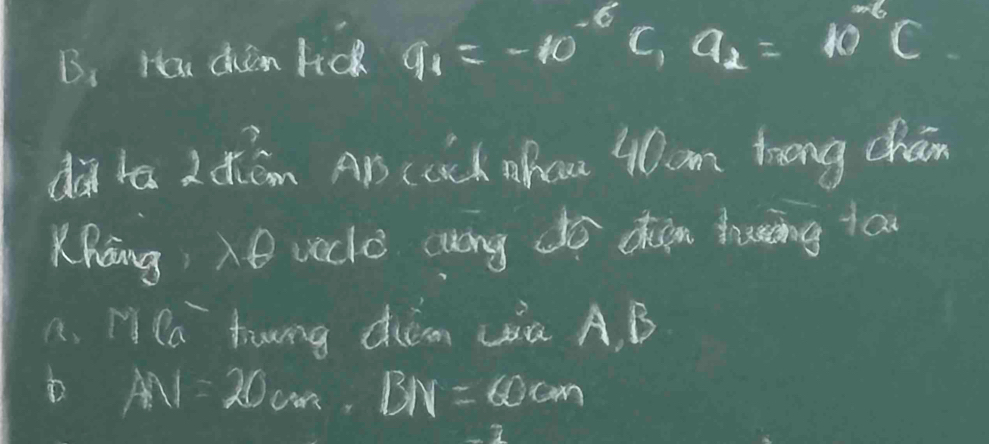 B1 Hai điện tích q₁ = -10⁻⁶ C, q₂ = 10⁻⁶ C.
đặt tại 2 điểm AB cách nhau 40cm trong chân
không, xđ vectơ cường độ điện trường tại
a, M là trung điểm của A,B
b AN = 20cm, BN = 60cm